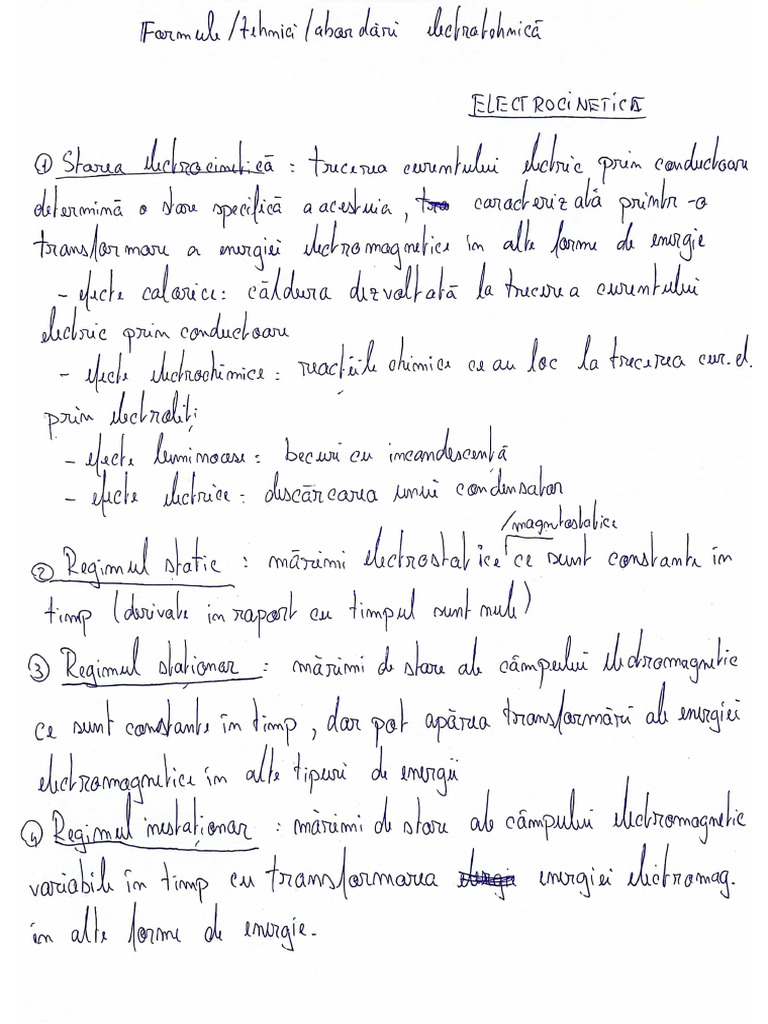 Formule/tehnici/abordări electrotehnică
ELECTROCINETICĂ
① Starea electrocinetică : trecerea curentului electric prin conductoare
determină o stare specifică a acestuia, caracterizată printr-o
transformare a energiei electromagnetice în alte forme de energie
- efecte calorice : căldura dezvoltată la trecerea curentului
electric prin conductoare
- efecte electrochimice : reacțiile chimice ce au loc la trecerea cur. el.
prin electroliți
- efecte luminoase : becuri cu incandescență
- efecte electrice : descărcarea unui condensator
/magnetostatice
② Regimul static : mărimi electrostatice ce sunt constante în
timp (derivate în raport cu timpul sunt nule)
③ Regimul staționar : mărimi de stare ale câmpului electromagnetic
ce sunt constante în timp, dar pot apărea transformări ale energiei
electromagnetice în alte tipuri de energii
④ Regimul nestaționar : mărimi de stare ale câmpului electromagnetic
variabile în timp cu transformarea energiei electromag.
în alte forme de energie.